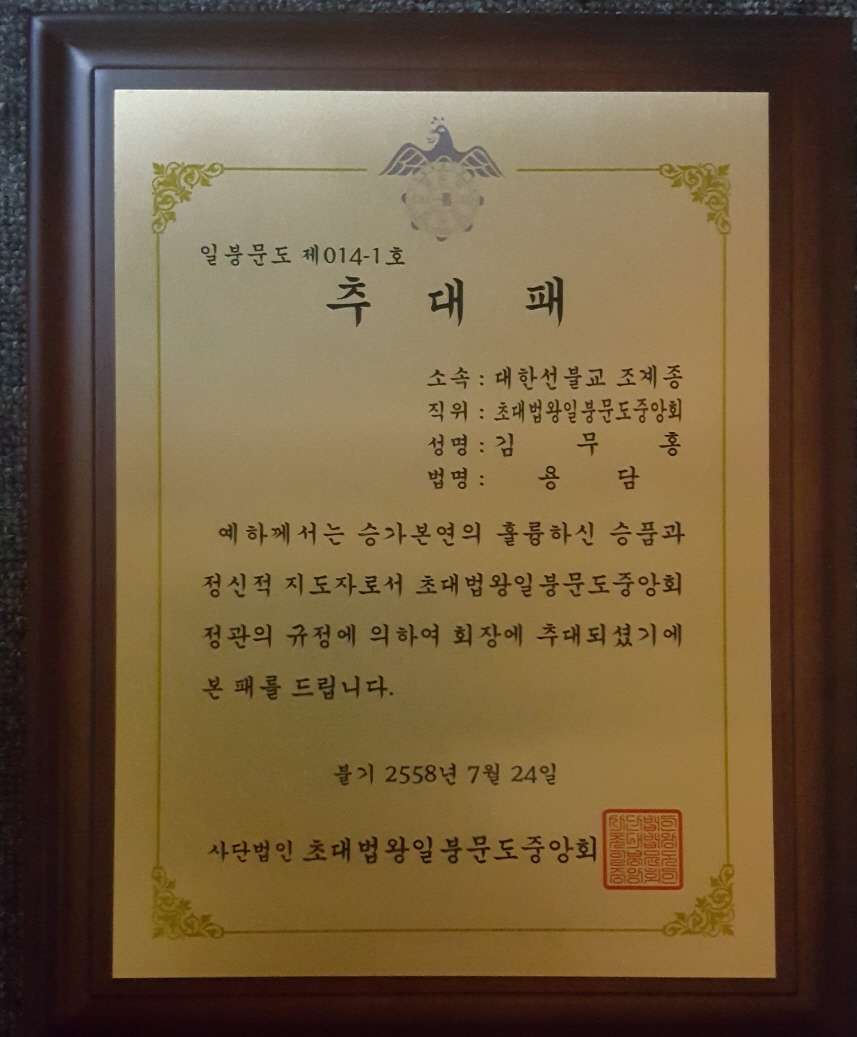 일붕문도 제014-1호
추 대 패
소속 : 대한선불교 조계종
직위 : 초대법왕일붕문도중앙회
성명 : 김 무 홍
법명 : 용 담
예하께서는 승가본연의 훌륭하신 승품과
정신적 지도자로서 초대법왕일붕문도중앙회
정관의 규정에 의하여 회장에 추대되셨기에
본 패를 드립니다.
불기 2558년 7월 24일
사단법인 초대법왕일붕문도중앙회